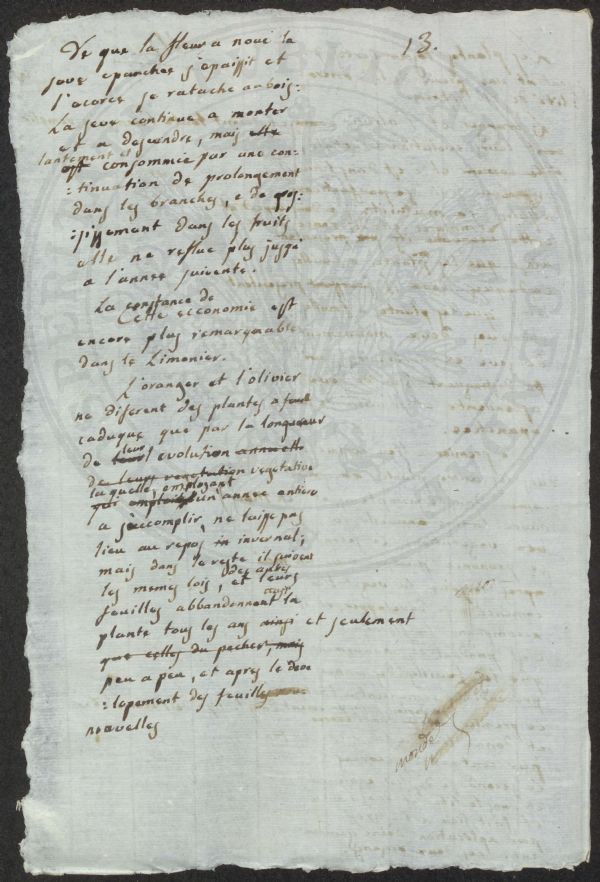 13.
De que la fleur a noué la
seve epanchée s'epaissit et
l'ecorce se ratache au bois:
La seve continue a monter
et a desendre, mais elle
lantement et
est consommée par une con-
:tinuation de prolongement
dans les branches, e de
:sissement dans les fruits
elle ne reflue plus jusqe
a l'année suivente.
La constance de
Cette economie est
encore plus remarquable
dans le Limonier.
L'oranger et l'olivier
ne diferent des plantes a feuil
caduque que par la longueur
de leur evolution annuelle
de leurs vegetation vegetative
laquelle employant
qui emploie un année entiere
a s'accomplir, ne laisse pas
lieu au repos in invernal;
mais dans le reste il suivent
les memes lois des autres, et leurs
feuilles abbandonnent la
aussi
plante tous les ans ainsi et seulement
que celles du pecher, mais
peu a peu, et apres le deve
:lopement des feuilles
nouvelles